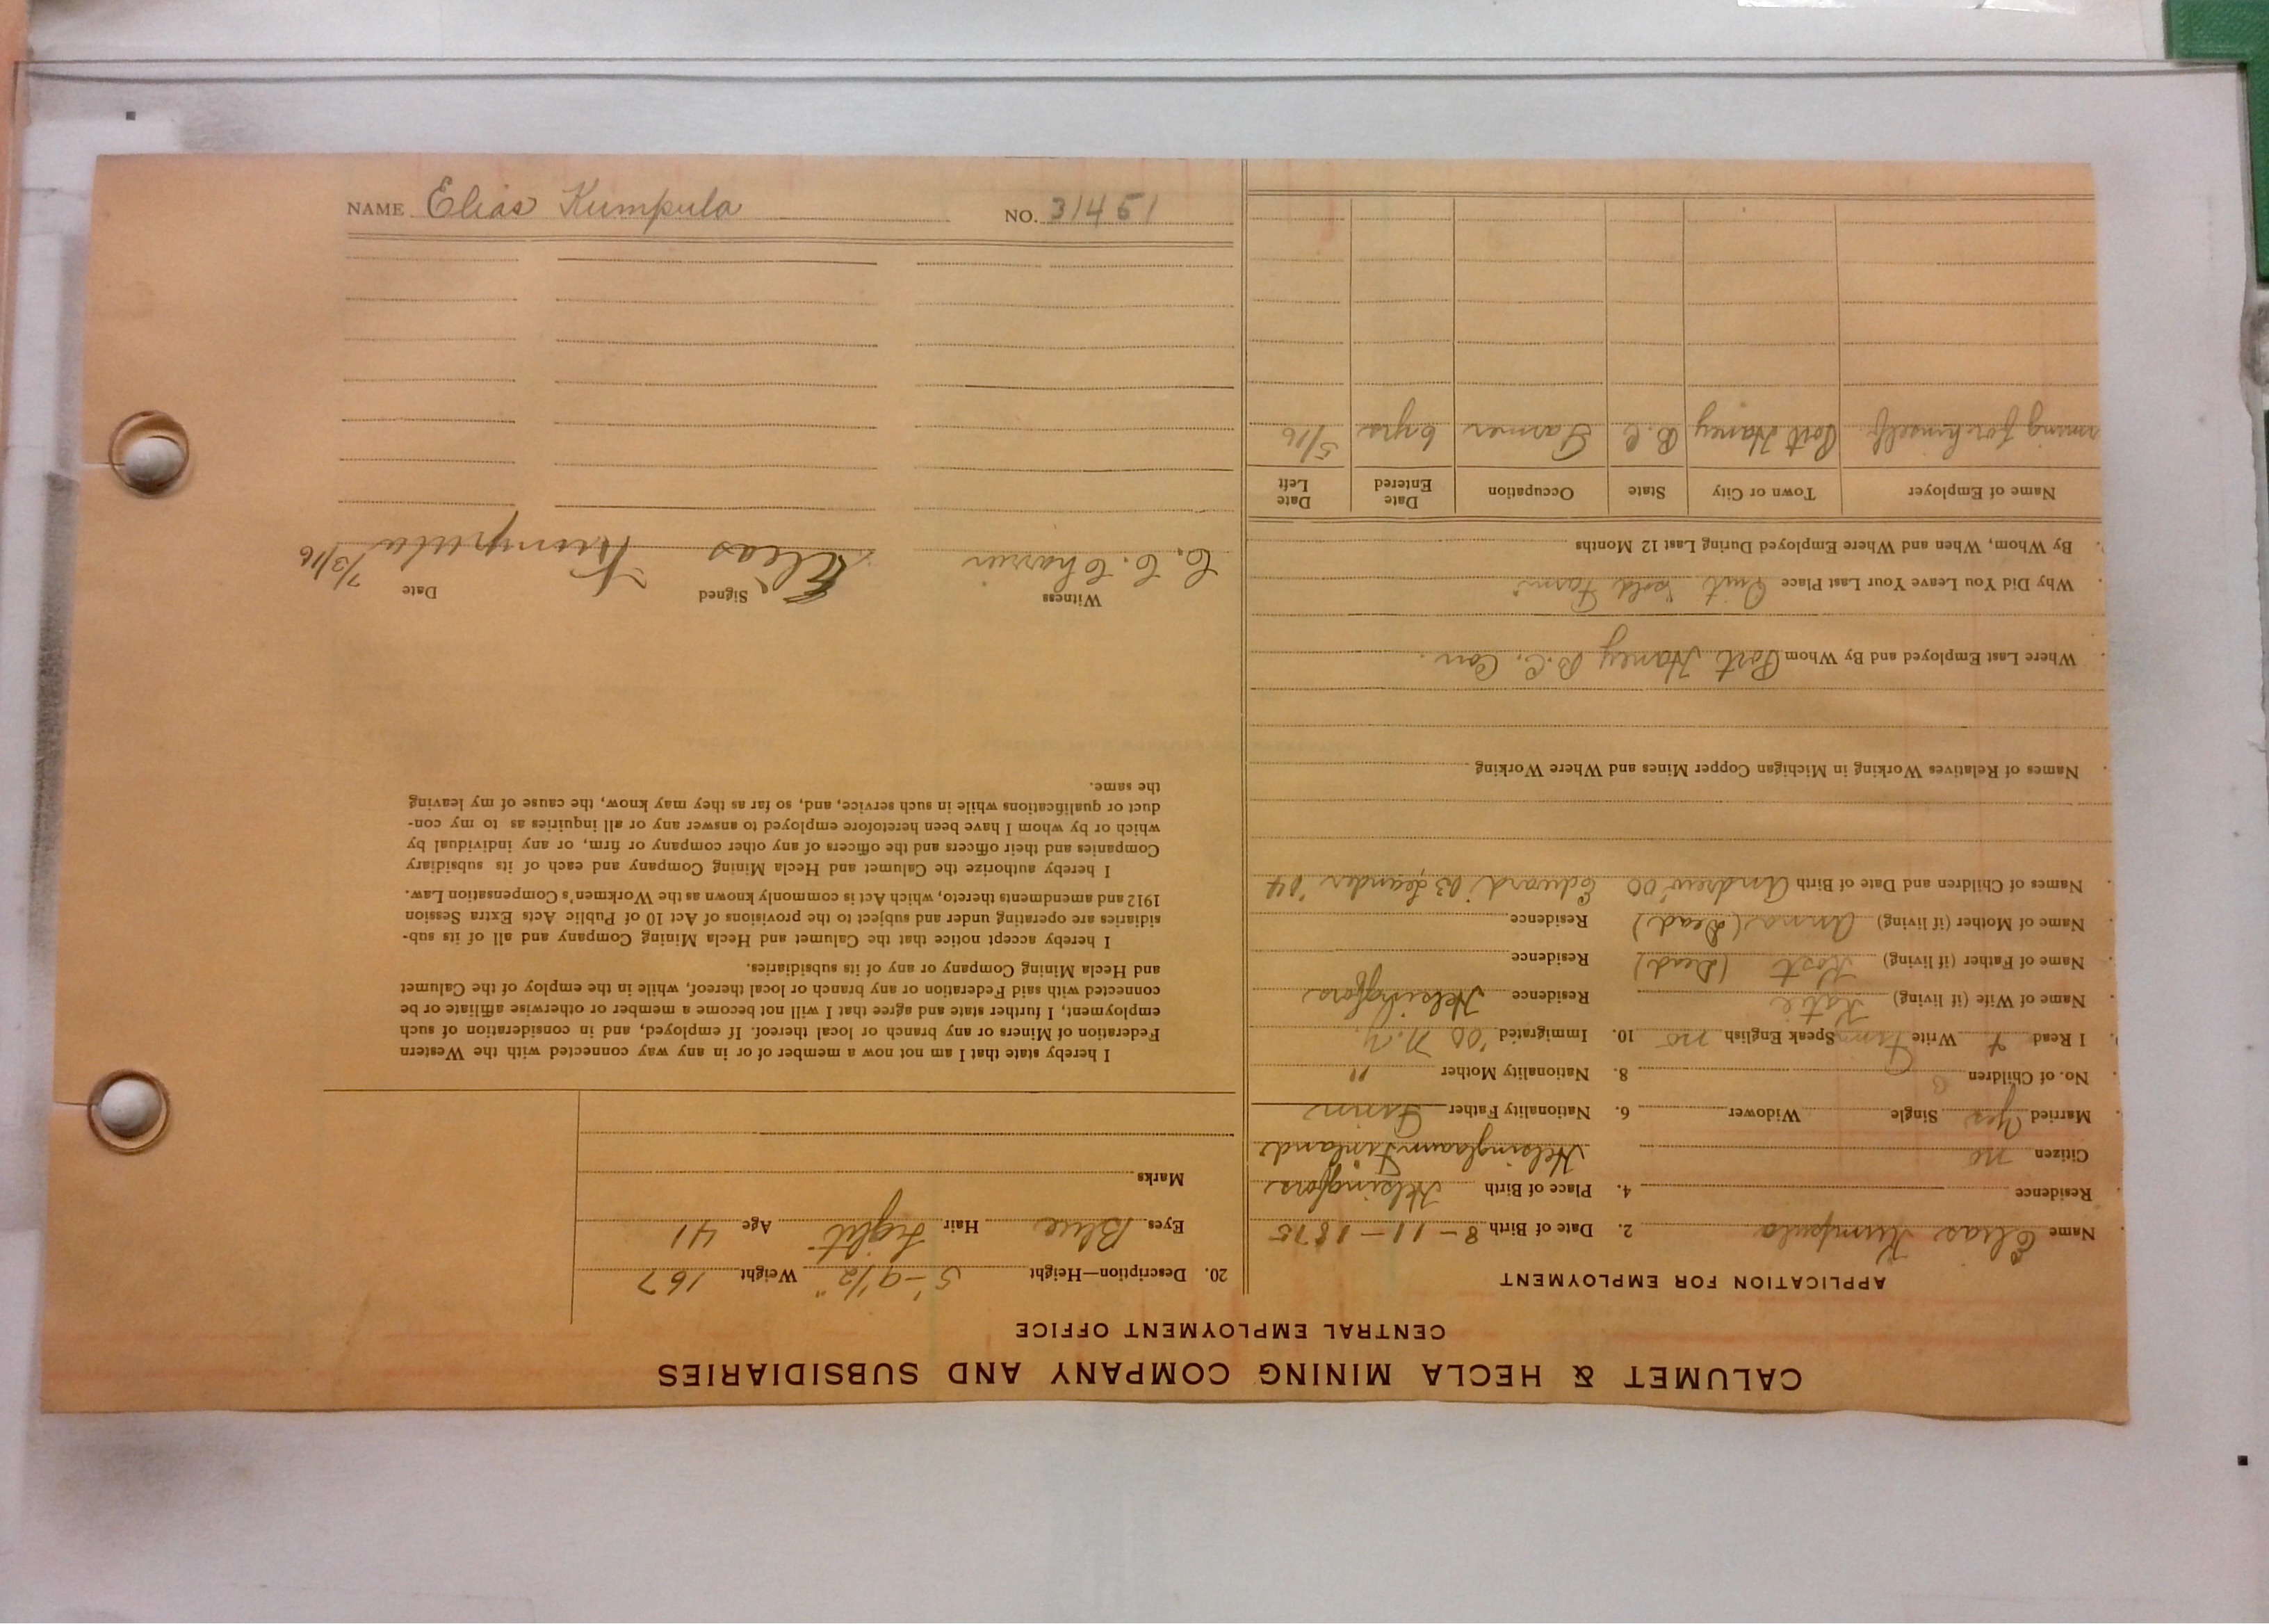 NAME Elias Kumpula NO. 31451
CALUMET & HECLA MINING COMPANY AND SUBSIDIARIES
CENTRAL EMPLOYMENT OFFICE
APPLICATION FOR EMPLOYMENT
Name Elias Kumpula 2. Date of Birth 8-11-1875
Residence 4. Place of Birth Helsingfors
Citizen no Finland
Married Yes Single Widower 6. Nationality Father Finn
No. of Children 8. Nationality Mother "
I Read Write Finn Speak English no 10. Immigrated '00 N.Y.
Name of Wife (if living) Katie Residence Helsingfors
Name of Father (if living) (Dead) Residence
Name of Mother (if living) Anna (Dead) Residence
Names of Children and Date of Birth Andrew '00 Edward '03 Leander '04
Names of Relatives Working in Michigan Copper Mines and Where Working
Where Last Employed and By Whom Port Haney B.C. Can.
Why Did You Leave Your Last Place Quit "sold Farm"
By Whom, When and Where Employed During Last 12 Months
Name of Employer Town or City State Occupation Date Entered Date Left
for himself Port Haney B.C Farmer 6 yrs 5/16
20. Description—Height 5'-9 1/2" Weight 167
Eyes Blue Hair Light Age 41
Marks
I hereby state that I am not now a member of or in any way connected with the Western
Federation of Miners or any branch or local thereof. If employed, and in consideration of such
employment, I further state and agree that I will not become a member or otherwise affiliate or be
connected with said Federation or any branch or local thereof, while in the employ of the Calumet
and Hecla Mining Company or any of its subsidiaries.
I hereby accept notice that the Calumet and Hecla Mining Company and all of its sub-
sidiaries are operating under and subject to the provisions of Act 10 of Public Acts Extra Session
1912 and amendments thereto, which Act is commonly known as the Workmen's Compensation Law.
I hereby authorize the Calumet and Hecla Mining Company and each of its subsidiary
Companies and their officers and the officers of any other company or firm, or any individual by
which or by whom I have been heretofore employed to answer any or all inquiries as to my con-
duct or qualifications while in such service, and, so far as they may know, the cause of my leaving
the same.
Witness Signed Date
C. C. Elias Kumpula 7/3/16